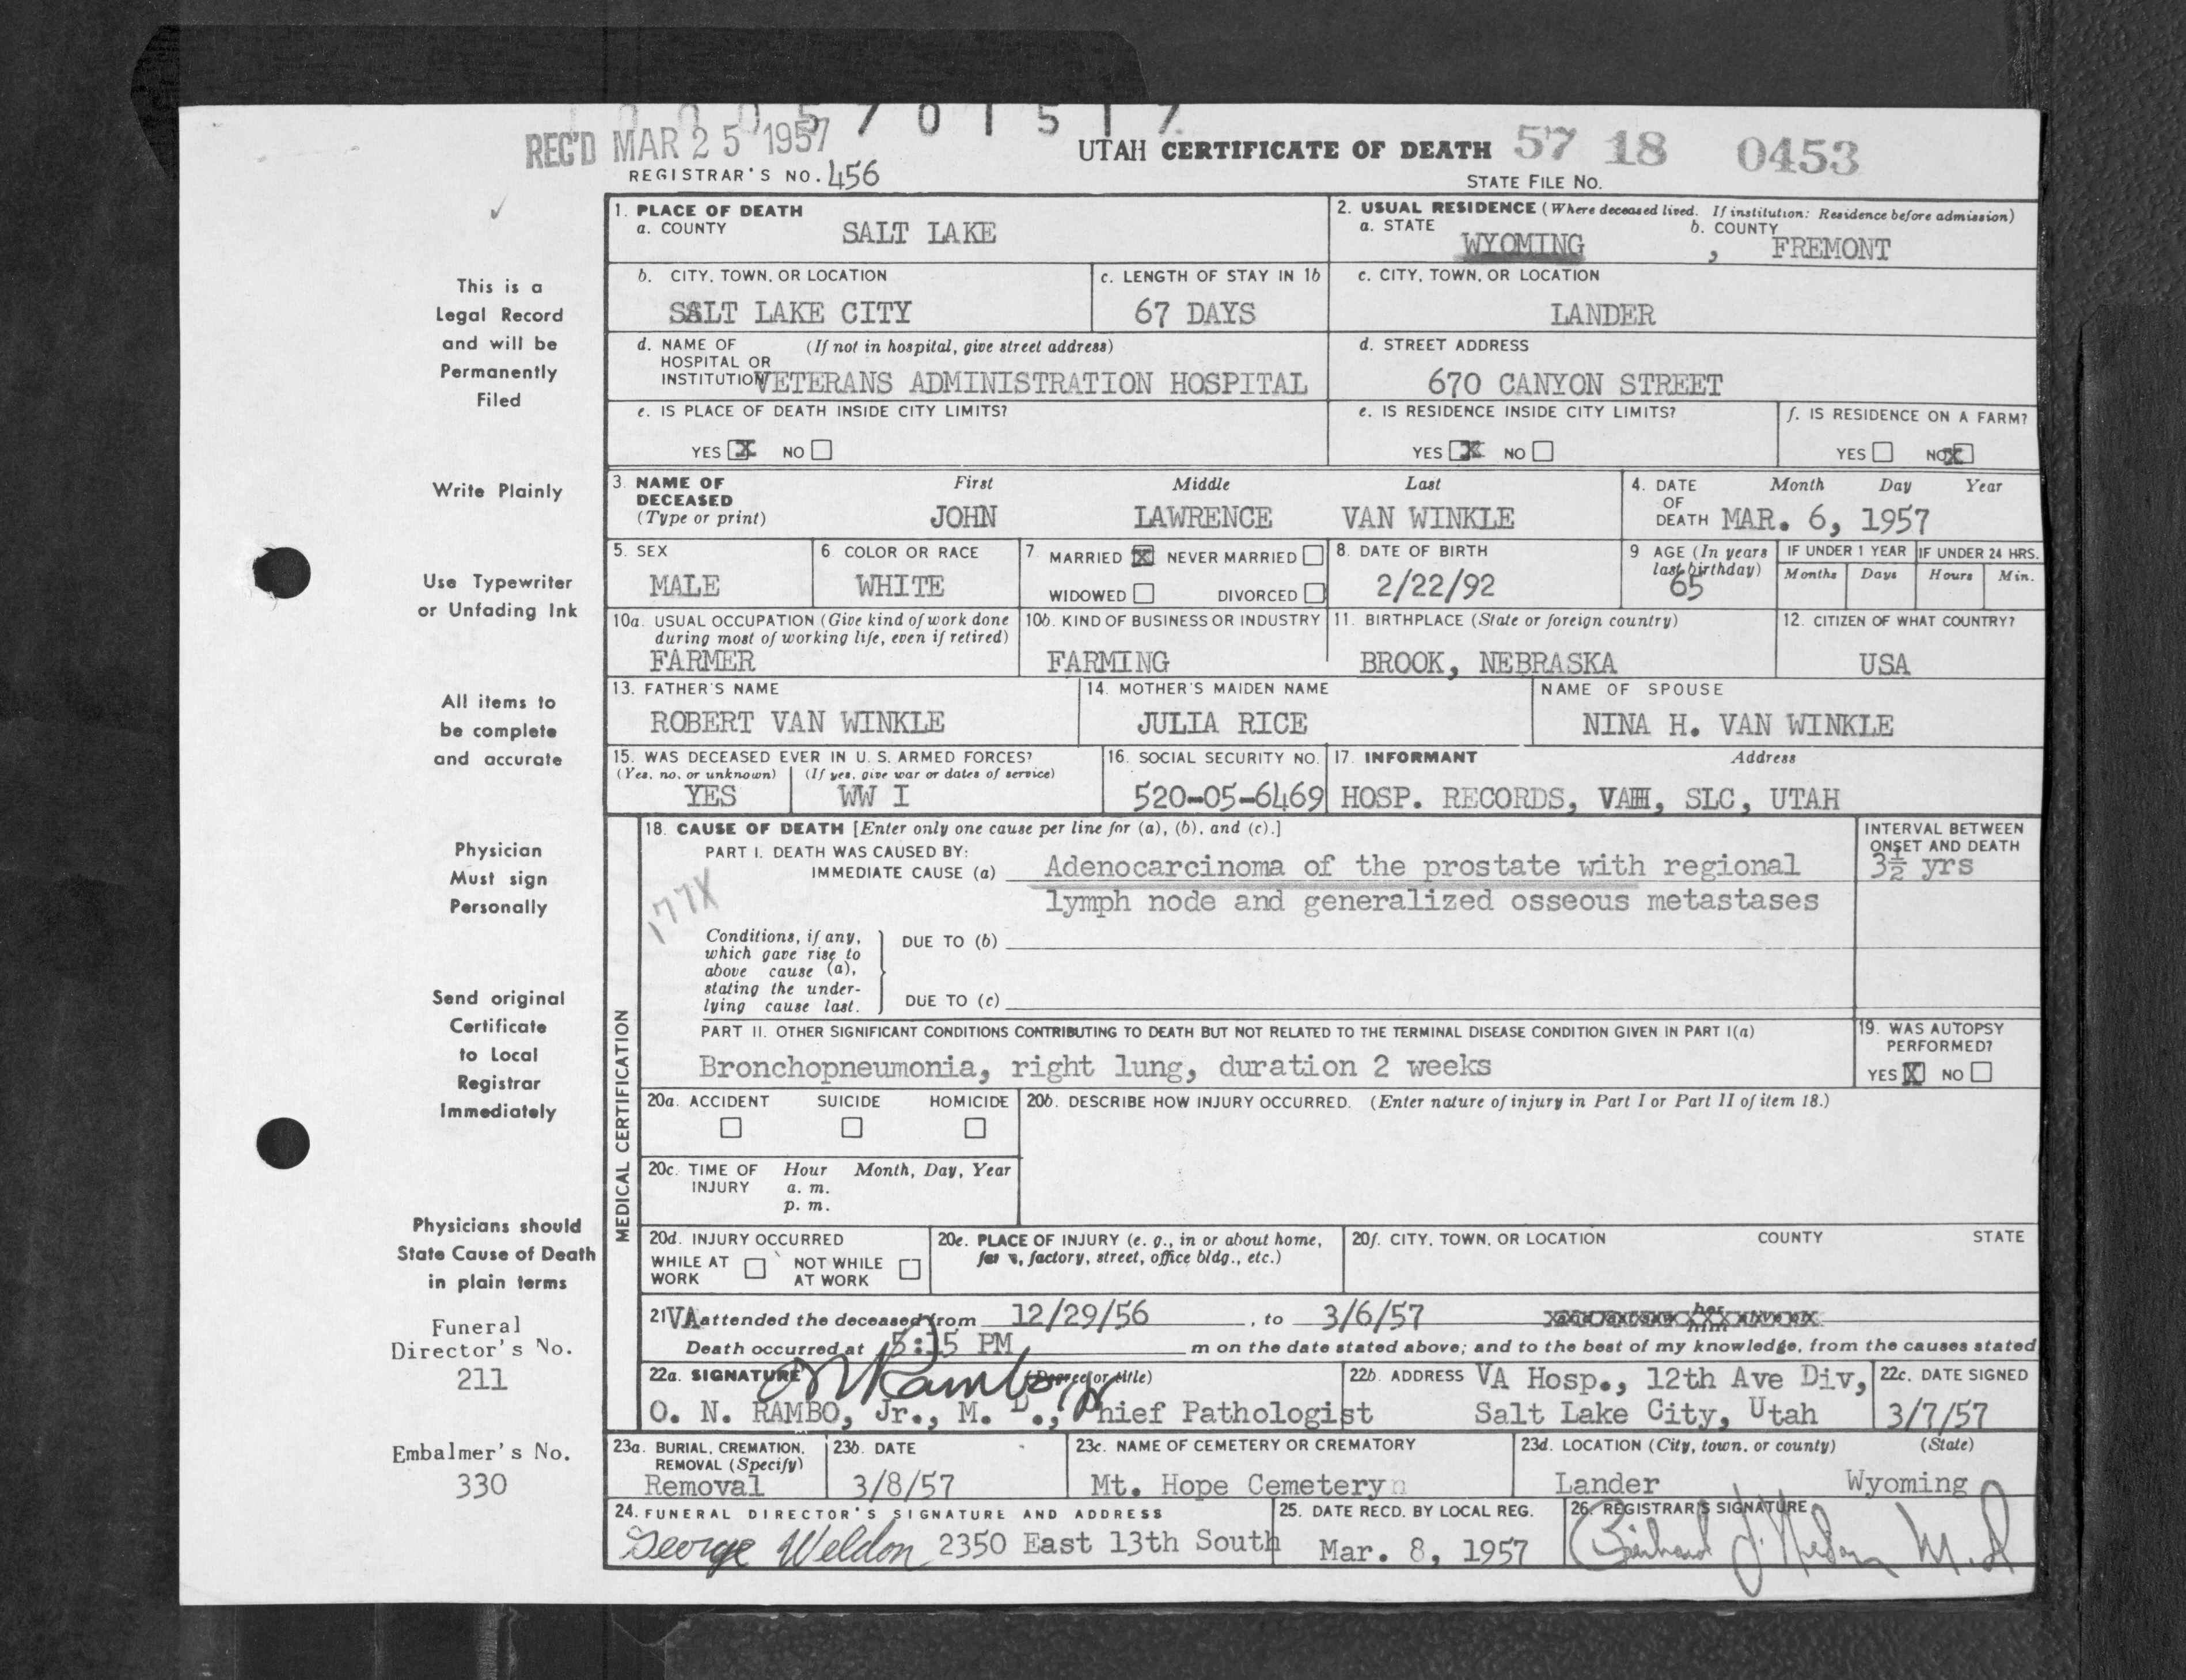 0005701517
REC'D MAR 25 1957
UTAH CERTIFICATE OF DEATH 57 18 0453
REGISTRAR'S NO. 456
STATE FILE No.
This is a
Legal Record
and will be
Permanently
Filed
Write Plainly
Use Typewriter
or Unfading Ink
All items to
be complete
and accurate
Physician
Must sign
Personally
Send original
Certificate
to Local
Registrar
Immediately
Physicians should
State Cause of Death
in plain terms
Funeral
Director's No.
211
Embalmer's No.
330
1. PLACE OF DEATH
a. COUNTY SALT LAKE
2. USUAL RESIDENCE (Where deceased lived. If institution: Residence before admission)
a. STATE WYOMING , b. COUNTY FREMONT
b. CITY, TOWN, OR LOCATION
SALT LAKE CITY
c. LENGTH OF STAY IN 1b
67 DAYS
c. CITY, TOWN, OR LOCATION
LANDER
d. NAME OF (If not in hospital, give street address)
HOSPITAL OR
INSTITUTION VETERANS ADMINISTRATION HOSPITAL
d. STREET ADDRESS
670 CANYON STREET
e. IS PLACE OF DEATH INSIDE CITY LIMITS?
YES X NO
e. IS RESIDENCE INSIDE CITY LIMITS?
YES X NO
f. IS RESIDENCE ON A FARM?
YES NO X
3. NAME OF DECEASED
(Type or print)
First Middle Last
JOHN LAWRENCE VAN WINKLE
4. DATE OF DEATH
Month Day Year
MAR. 6, 1957
5. SEX
MALE
6. COLOR OR RACE
WHITE
7. MARRIED X NEVER MARRIED
WIDOWED DIVORCED
8. DATE OF BIRTH
2/22/92
9 AGE (In years
last birthday)
65
IF UNDER 1 YEAR IF UNDER 24 HRS.
Months Days Hours Min.
10a. USUAL OCCUPATION (Give kind of work done
during most of working life, even if retired)
FARMER
10b. KIND OF BUSINESS OR INDUSTRY
FARMING
11. BIRTHPLACE (State or foreign country)
BROOK, NEBRASKA
12. CITIZEN OF WHAT COUNTRY?
USA
13. FATHER'S NAME
ROBERT VAN WINKLE
14. MOTHER'S MAIDEN NAME
JULIA RICE
NAME OF SPOUSE
NINA H. VAN WINKLE
15. WAS DECEASED EVER IN U. S. ARMED FORCES?
(Yes, no, or unknown) (If yes, give war or dates of service)
YES WW I
16. SOCIAL SECURITY NO.
520-05-6469
17. INFORMANT Address
HOSP. RECORDS, VAH, SLC, UTAH
MEDICAL CERTIFICATION
18. CAUSE OF DEATH [Enter only one cause per line for (a), (b), and (c).]
PART I. DEATH WAS CAUSED BY:
IMMEDIATE CAUSE (a) Adenocarcinoma of the prostate with regional
lymph node and generalized osseous metastases
177X
INTERVAL BETWEEN
ONSET AND DEATH
3½ yrs
Conditions, if any,
which gave rise to
above cause (a),
stating the under-
lying cause last.
DUE TO (b)
DUE TO (c)
PART II. OTHER SIGNIFICANT CONDITIONS CONTRIBUTING TO DEATH BUT NOT RELATED TO THE TERMINAL DISEASE CONDITION GIVEN IN PART I(a)
Bronchopneumonia, right lung, duration 2 weeks
19. WAS AUTOPSY
PERFORMED?
YES X NO
20a. ACCIDENT SUICIDE HOMICIDE
20b. DESCRIBE HOW INJURY OCCURRED. (Enter nature of injury in Part I or Part II of item 18.)
20c. TIME OF INJURY
Hour Month, Day, Year
a. m.
p. m.
20d. INJURY OCCURRED
WHILE AT WORK NOT WHILE AT WORK
20e. PLACE OF INJURY (e. g., in or about home,
factory, street, office bldg., etc.)
20f. CITY, TOWN, OR LOCATION COUNTY STATE
21 VA attended the deceased from 12/29/56 , to 3/6/57
Death occurred at 5:15 PM m on the date stated above; and to the best of my knowledge, from the causes stated
22a. SIGNATURE (Degree or title)
O. N. RAMBO, Jr., M. D., Chief Pathologist
22b. ADDRESS VA Hosp., 12th Ave Div,
Salt Lake City, Utah
22c. DATE SIGNED
3/7/57
23a. BURIAL, CREMATION,
REMOVAL (Specify)
Removal
23b. DATE
3/8/57
23c. NAME OF CEMETERY OR CREMATORY
Mt. Hope Cemetery
23d. LOCATION (City, town, or county) (State)
Lander Wyoming
24. FUNERAL DIRECTOR'S SIGNATURE AND ADDRESS
George Weldon 2350 East 13th South
25. DATE RECD. BY LOCAL REG.
Mar. 8, 1957
26. REGISTRAR'S SIGNATURE